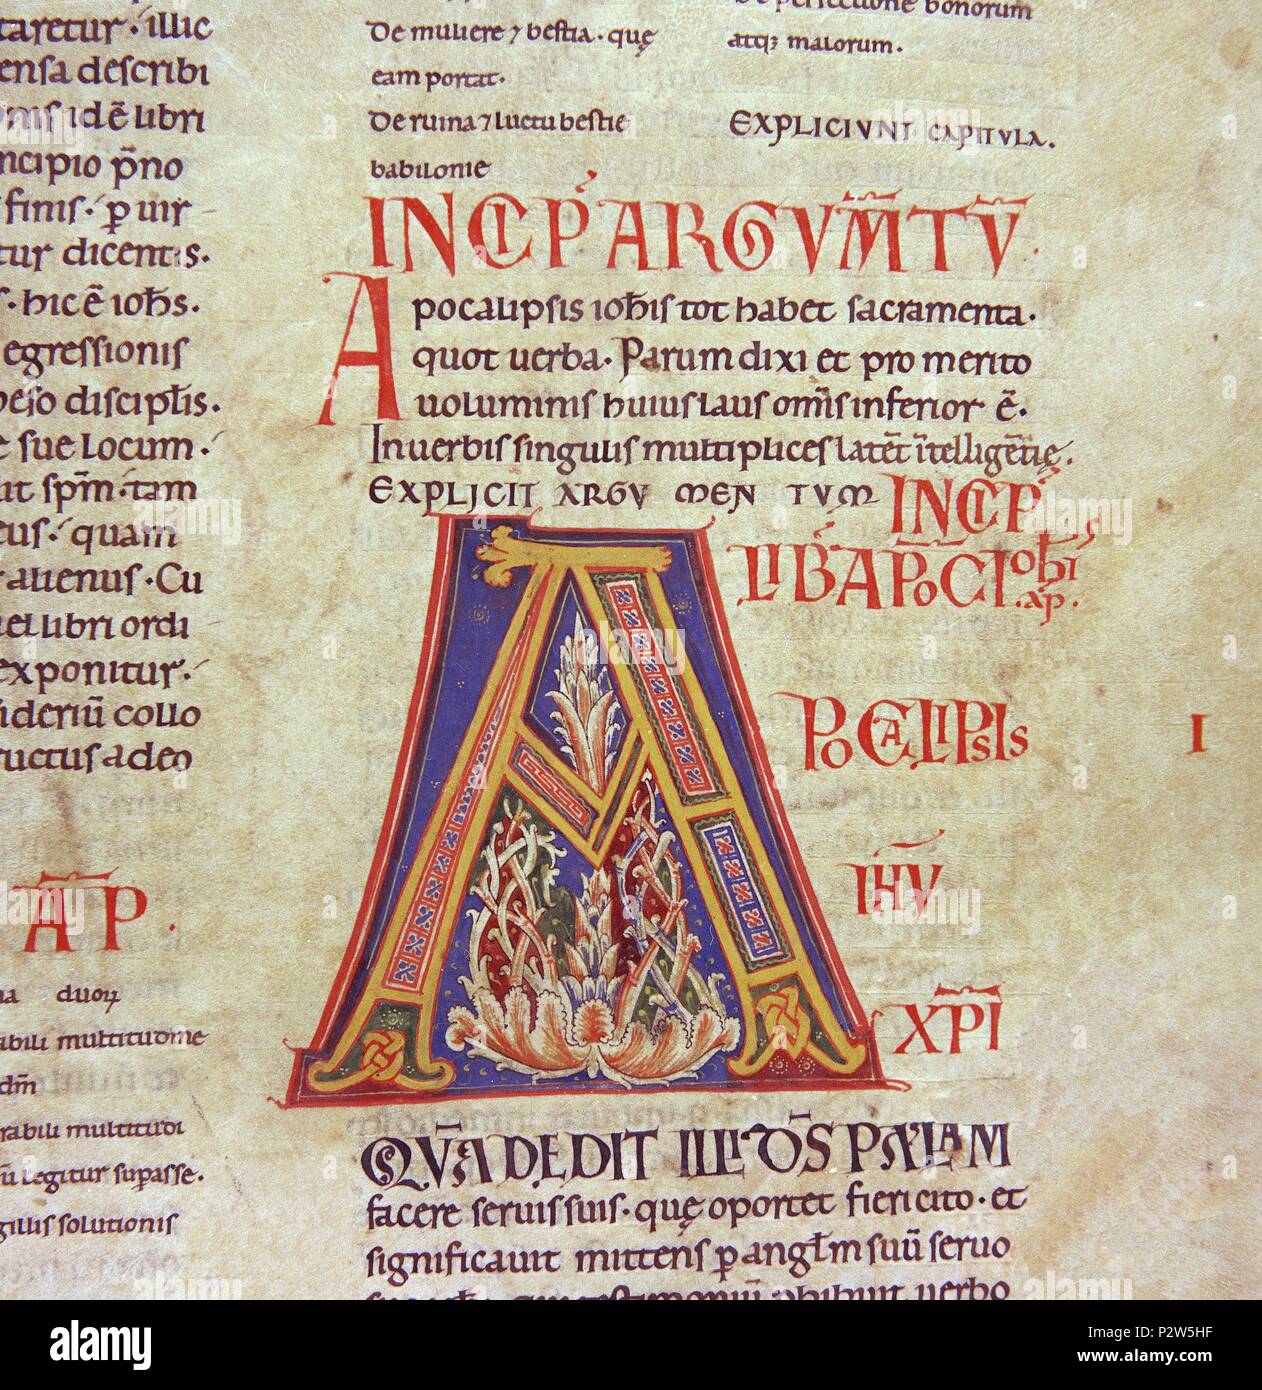 taretur · illic
ensa describi
onis idē libri
ncipio p̄no
finis · ꝑ uir
tur dicentis.
hic ē ioh̄s.
egressionis
disciplīs.
e sue locum.
it sp̄m · tam
cus · quam
alienus · Cu
el libri ordi
exponitur.
ideriū collo
ructus adeo
A̅P.
na duoꝝ
abili multitudine
dm̄
rabili multitudi
ū legitur supasse.
gillis solutionis
De muliere ⁊ bestia · quę
eam portat.
De ruina ⁊ luctu bestie
babilonie
De perfectione bonorum
atqꝫ malorum.
EXPLICIVNT CAPITVLA.
INCIP̄ ARGVM̄TV̄
Apocalipsis ioh̄is tot habet sacramenta.
quot uerba. Parum dixi et pro merito
uoluminis huius laus om̄is inferior ē.
In uerbis singulis multiplices latēt ītelligētię.
EXPLICIT ARGVMENTVM INCIP̄
LIB̄ APOC̄ IOH̄I
AP.
A
POCALIPSIS
I
IHV̄
XP̄I
QVĀ DEDIT ILLI DS̄ PALAM
facere seruis suis · quę oportet fieri cito · et
significauit mittens ꝑ angl̄m suū seruo
uerbo